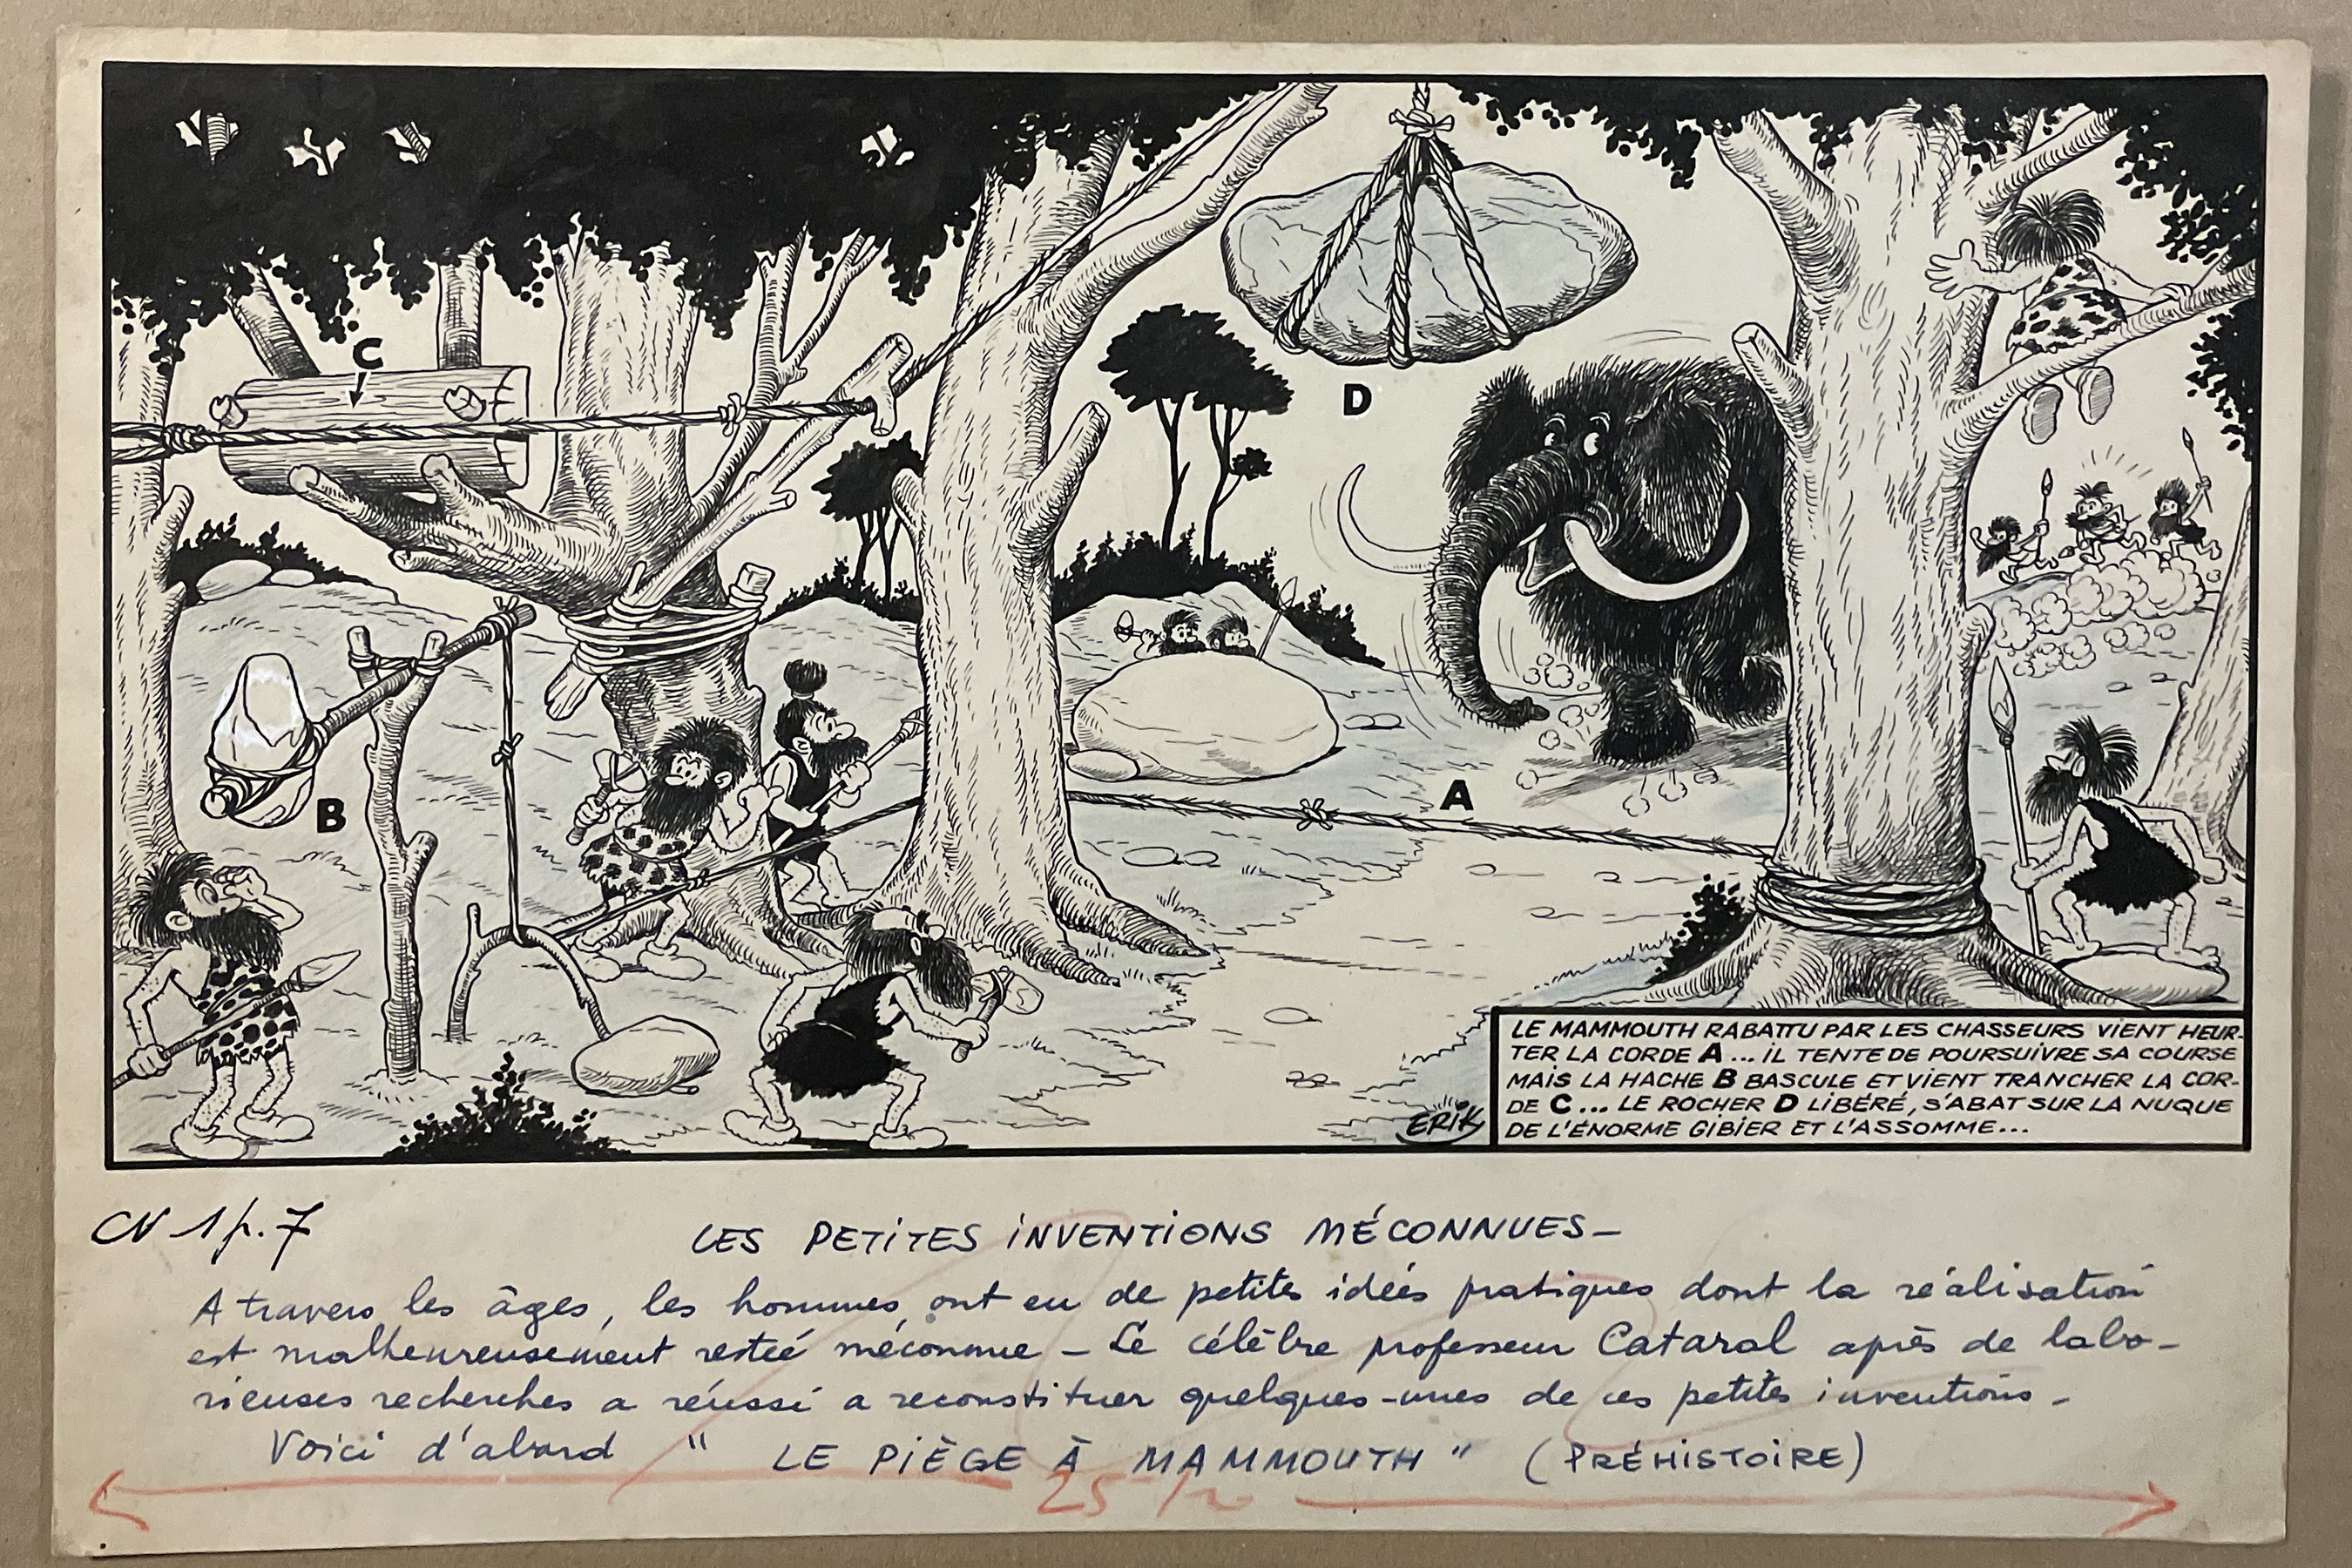 C
D
B
A
LE MAMMOUTH RABATTU PAR LES CHASSEURS VIENT HEUR-
TER LA CORDE A... IL TENTE DE POURSUIVRE SA COURSE
MAIS LA HACHE B BASCULE ET VIENT TRANCHER LA COR-
DE C... LE ROCHER D LIBÉRÉ, S'ABAT SUR LA NUQUE
DE L'ÉNORME GIBIER ET L'ASSOMME...
ERIK
CN 1 p. 7
LES PETITES INVENTIONS MÉCONNUES -
A travers les âges, les hommes, ont eu de petites idées pratiques dont la réalisation
est malheureusement restée méconnue - Le célèbre professeur Cataral après de labo-
rieuses recherches a réussi a reconstituer quelques-unes de ces petites inventions -
Voici d'abord " LE PIÈGE À MAMMOUTH " (PRÉHISTOIRE)
25